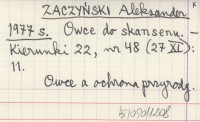 ZACZYŃSKI Aleksander
1977 s. Owce do skansenu. –
Kierunki 22, nr 48 (27 XI):
11.
Owce a ochrona przyrody.